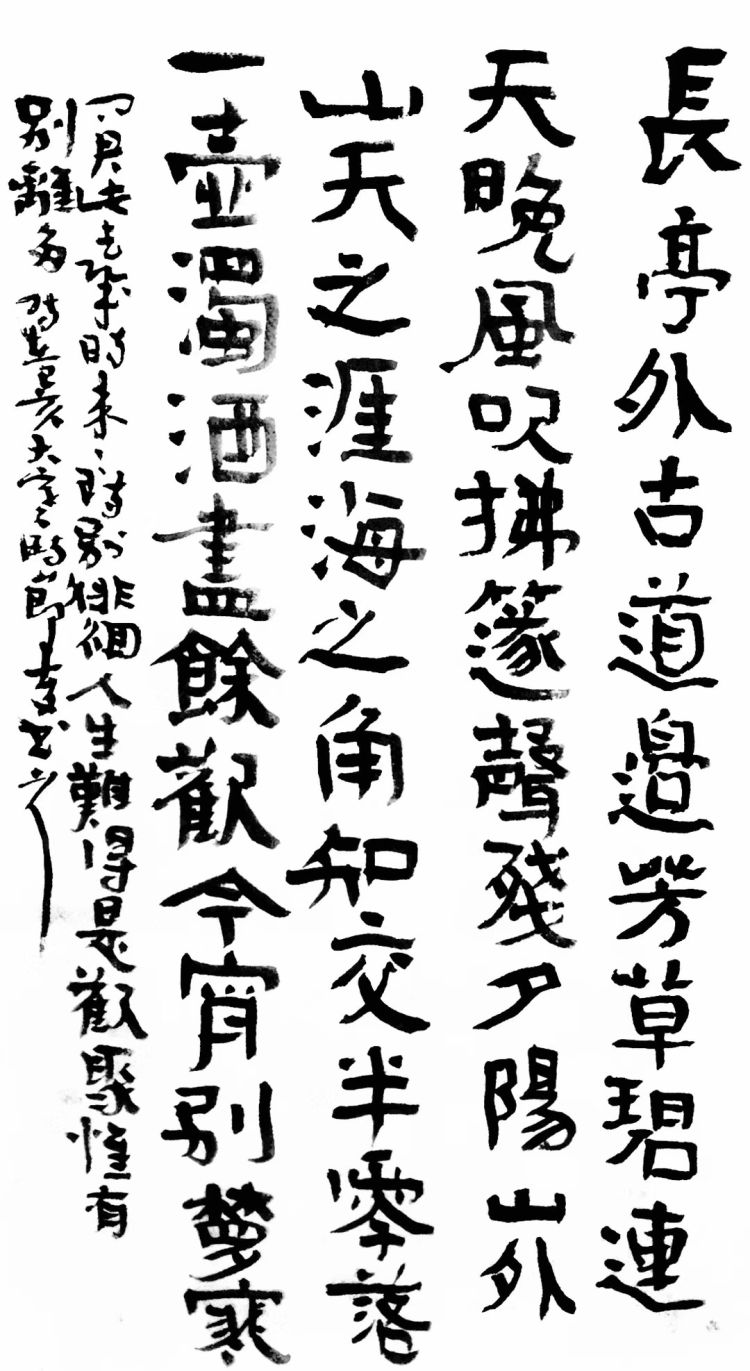 長亭外古道邉芳草碧連
天晚風吹拂篴聲殘夕陽山外
山天之涯海之角知交半零落
一壺濁酒盡餘歡今宵別夢寒
問君此去幾時來〻時別徘徊人生難得是歡聚惟有
別離多 時大寒之時節書